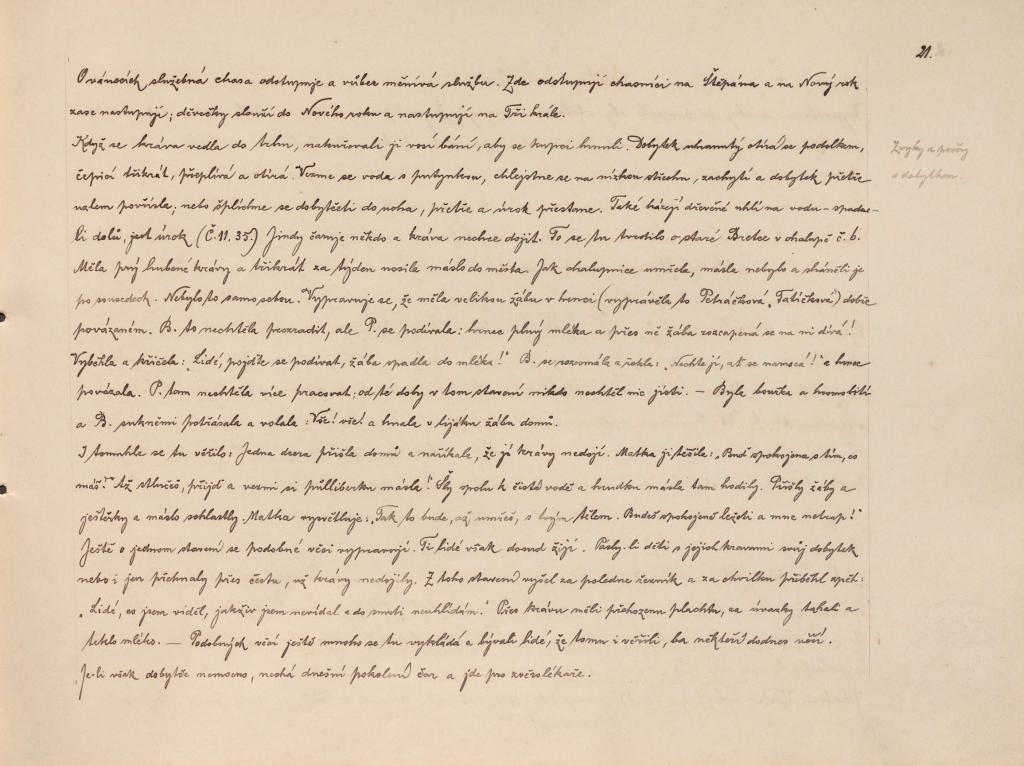 21.
O vánocích služebná chasa odstupuje a vůbec měnívá službu. Zde odstupují chasníci na Štěpána a na Nový rok
zase nastupují; děvečky slouží do Nového roku a nastupují na Tři krále.
Když se kráva vedla do trhu, nakuřovali ji vosí bání, aby se kupci hrnuli. Dobytek uhranutý otírá se podolkem,
Zvyky a pověry
čepicí třikrát, přeplivá a otírá. Vezme se voda s putynkou, chlejstne se na nízkou střechu, zachytí a dobytek přetře
s dobytkem.
uzlem povřísla; nebo šplíchne se dobytčeti do ucha, přetře a úrok přestane. Také házejí dřevěné uhlí na vodu – spadne-
li dolů, jest úrok (Č. 11, 35.) Jindy čaruje někdo a kráva nechce dojit. To se tu tvrdilo o staré Bretce v chalupě č. 6.
Měla prý hubené krávy a třikrát za týden nosila máslo do města. Jak chalupnice umřela, másla nebylo a sháněli je
po sousedech. Nebylo to samo sebou. Vypravuje se, že měla velikou žábu v hrnci (vyprávěla to Petráčková „Tatíčková") dobře
povázaném. B. to nechtěla prozradit, ale P. se podívala: hrnec plný mléka a přes ně žába rozcapená se na ni dívá!
Vyběhla a křičela: „Lidé, pojďte se podívat, žába spadla do mléka!" B. se rozesmála a řekla: „Nechte ji, ať se namočí!" a hrnec
povázala. P. tam nechtěla více pracovat; od té doby v tom stavení nikdo nechtěl nic jísti. — Byla bouřka a hromobití
a B. sukněmi potřásala a volala: Vče! vče! a hnala v lijáku žábu domů.
I tomuhle se tu věřilo: Jedna dcera přišla domů a naříkala, že jí krávy nedojí. Matka ji těšila: „Buď spokojena s tím, co
máš!" Až stlučeš, přijď a vezmi si půlliberku másla!" Šly spolu k čisté vodě a hrudku másla tam hodily. Přišly žáby a
ještěrky a máslo sohlastly. Matka vysvětluje: „Tak to bude, až umřeš, s tvým tělem. Budeš spokojeně ležeti a mne netrap!"
Ještě o jednom stavení se podobné věci vypravují. Ti lidé však dosud žijí. Pásly-li děti s jejich kravami svůj dobytek
nebo i jen přehnaly přes cestu, už krávy nedojily. Z toho stavení vyšel za poledne žebrák a za chvilku přiběhl zpět:
„Lidé, co jsem viděl, jakživ jsem nevídal a do smrti neuhlídám." Přes krávu měli přehozenu plachtu, za úvazky tahali a
teklo mléko. — Podobných věcí ještě mnoho se tu vykládá a bývali lidé, že tomu i věřili, ba někteří dodnes věří.
Je-li však dobytče nemocno, nechá dnešní pokolení čar a jde pro zvěrolékaře.